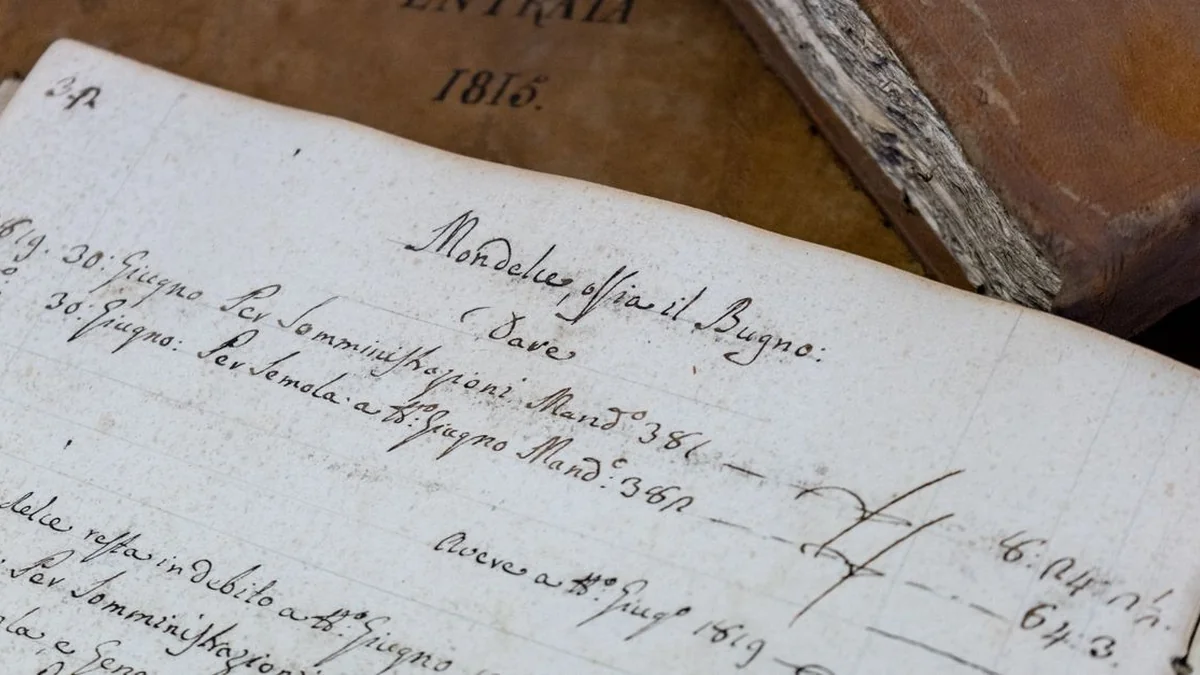 ENTRATA
1815.
32
Mondelce, ossia il Bugno:
Dare
1819. 30: Giugno Per Somministrazioni Mando 381
30: Giugno: Per Semola a tto: Giugno Mando: 382 64:3.
Avere a tto: Giugo 1819
delce resta in debito a tto: Giugno
Per Somministrazioni